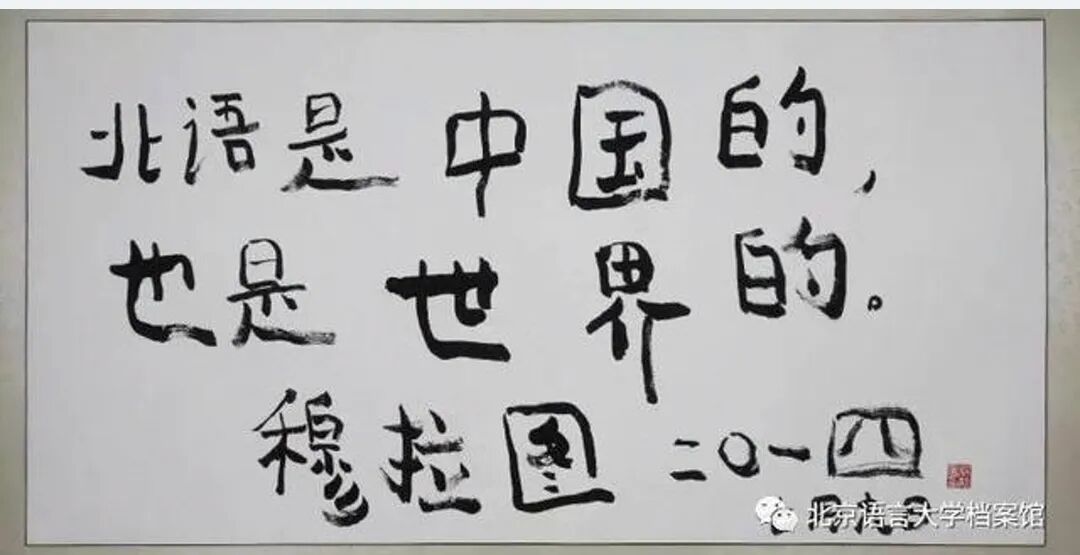 北语是中国的,
也是世界的。
穆拉图 二〇一四
北京语言大学档案馆